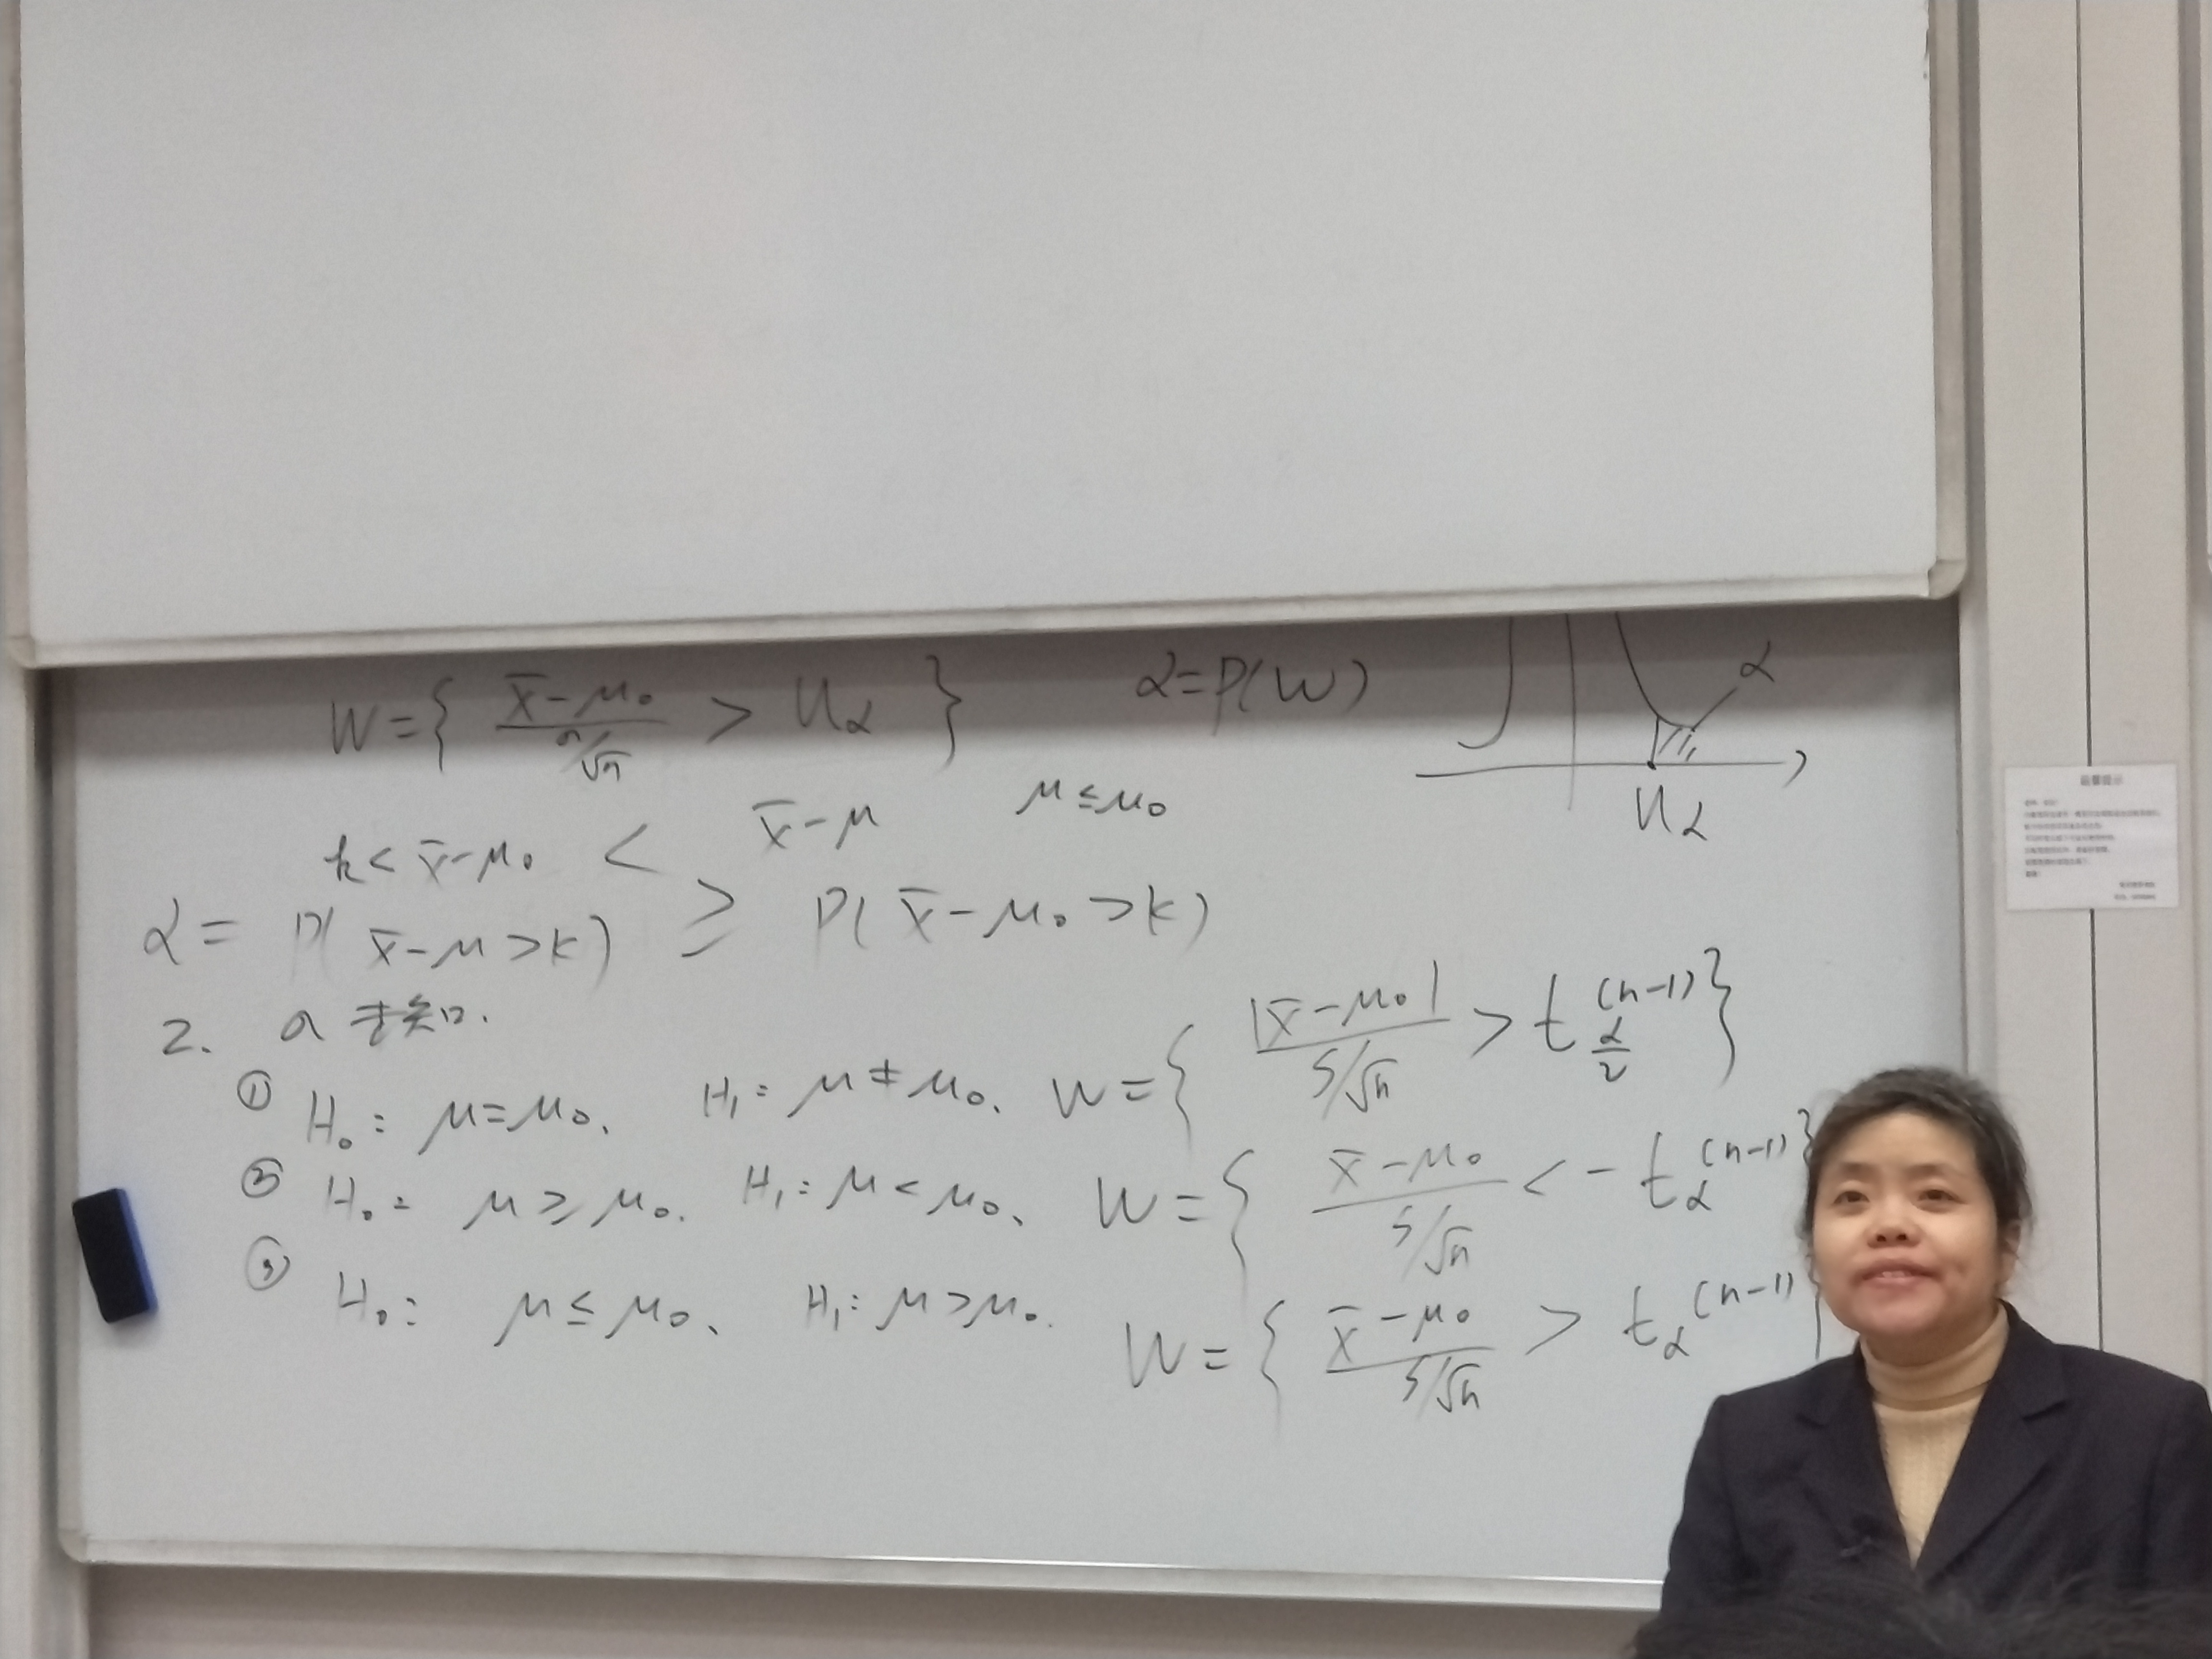 W={ (x̄-μ₀)/(σ/√n) > u_α }
α=P(W)
α
u_α
k< x̄-μ₀ < x̄-μ
μ≤μ₀
α= P( x̄-μ >k) ≥ P( x̄-μ₀ >k)
2. σ 未知.
① H₀: μ=μ₀. H₁: μ≠μ₀. W={ |x̄-μ₀|/(S/√n) > t_{α/2}(n-1)}
② H₀: μ≥μ₀. H₁: μ<μ₀. W={ (x̄-μ₀)/(S/√n) < -t_α(n-1)}
③ H₀: μ≤μ₀. H₁: μ>μ₀. W={ (x̄-μ₀)/(S/√n) > t_α(n-1)}